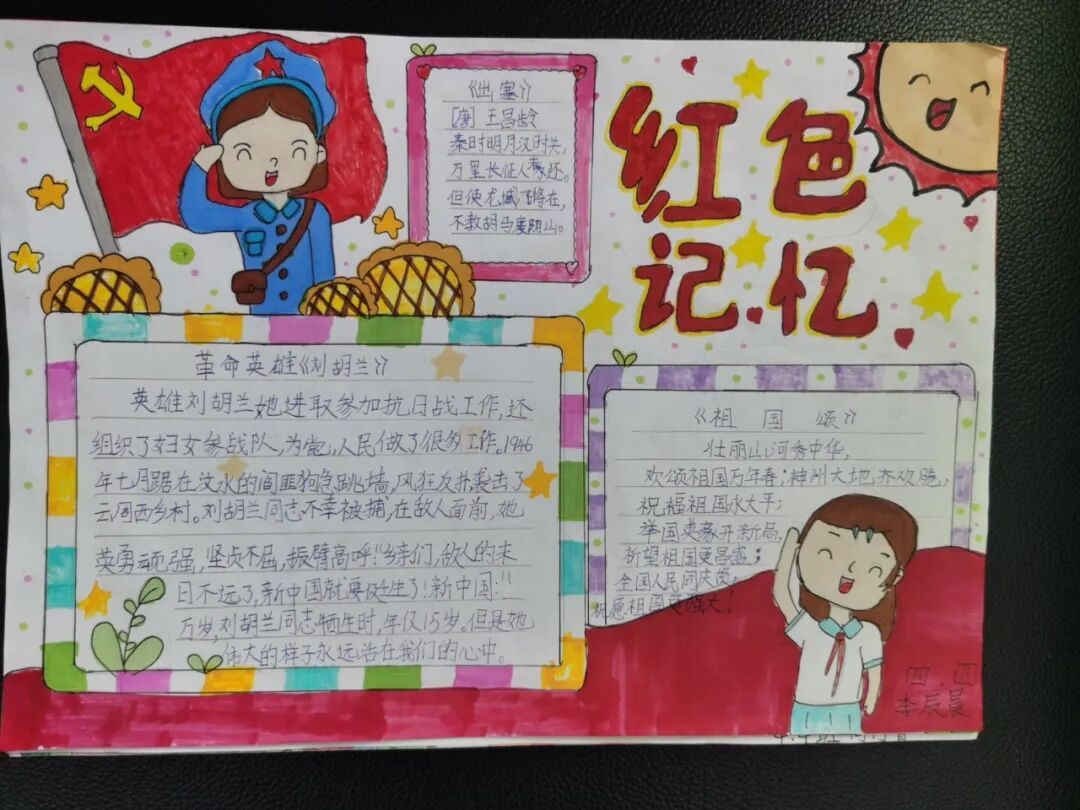 红色
记忆
《出塞》
[唐] 王昌龄
秦时明月汉时关,
万里长征人未还。
但使龙城飞将在,
不教胡马度阴山。
革命英雄《刘胡兰》
英雄刘胡兰她进取参加抗日战工作,还
组织了妇女参战队,为党人民做了很多工作。1946
年七月踞在汶水的阎匪狗急跳墙,风狂反扑袭击了
云周西乡村。刘胡兰同志不幸被捕,在敌人面前,她
英勇顽强,坚贞不屈,振臂高呼!"乡亲们,敌人的末
日不远了,新中国就要诞生了!新中国!"
万岁,刘胡兰同志牺生时,年仅15岁。但是她
伟大的样子永远活在我们的心中。
《祖国颂》
壮丽山河秀中华,
欢颂祖国万年春;神州大地齐欢腾,
祝福祖国水太平;
举国英豪开新局,
祈望祖国更昌盛;
全国人民同庆贺,
祝愿祖国更强大!
四.四
李辰晨